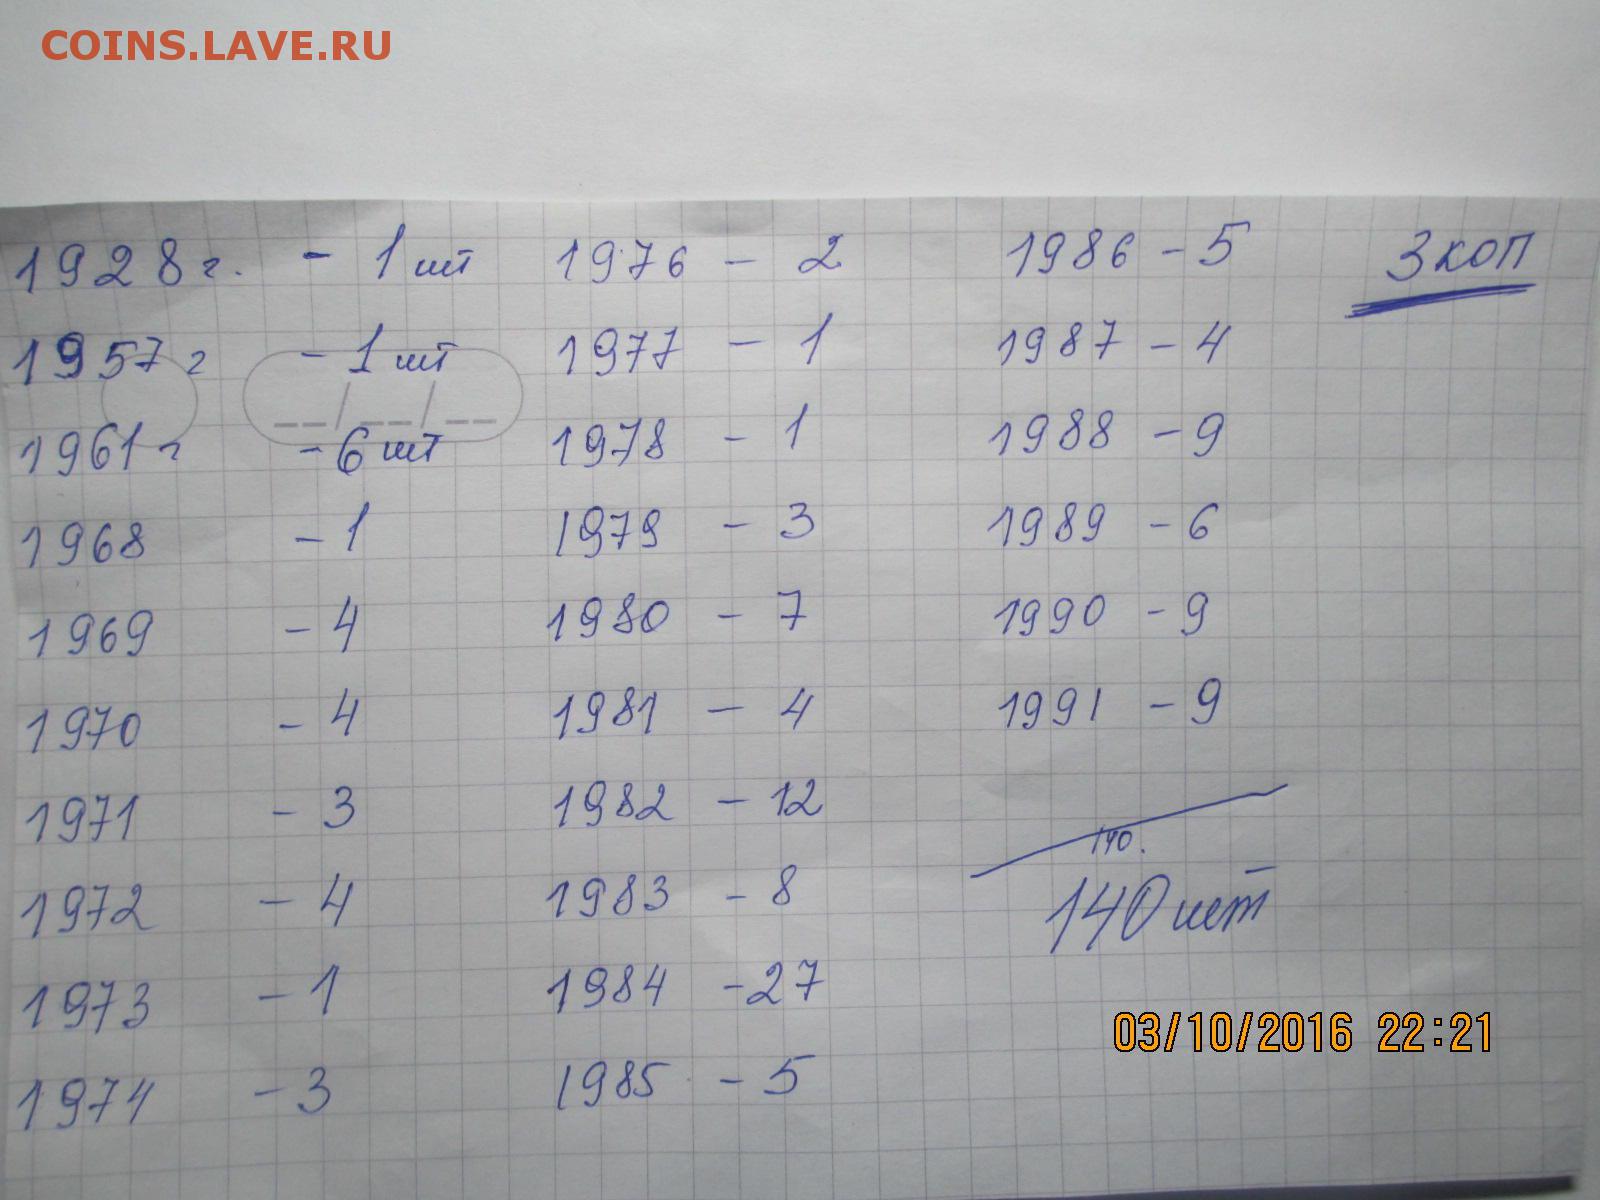 COINS.LAVE.RU
1928 г. - 1 шт
1957 г - 1 шт
1961 г - 6 шт
1968 - 1
1969 - 4
1970 - 4
1971 - 3
1972 - 4
1973 - 1
1974 - 3
1976 - 2
1977 - 1
1978 - 1
1979 - 3
1980 - 7
1981 - 4
1982 - 12
1983 - 8
1984 - 27
1985 - 5
1986 - 5
1987 - 4
1988 - 9
1989 - 6
1990 - 9
1991 - 9
140.
140 шт
3 коп
03/10/2016 22:21